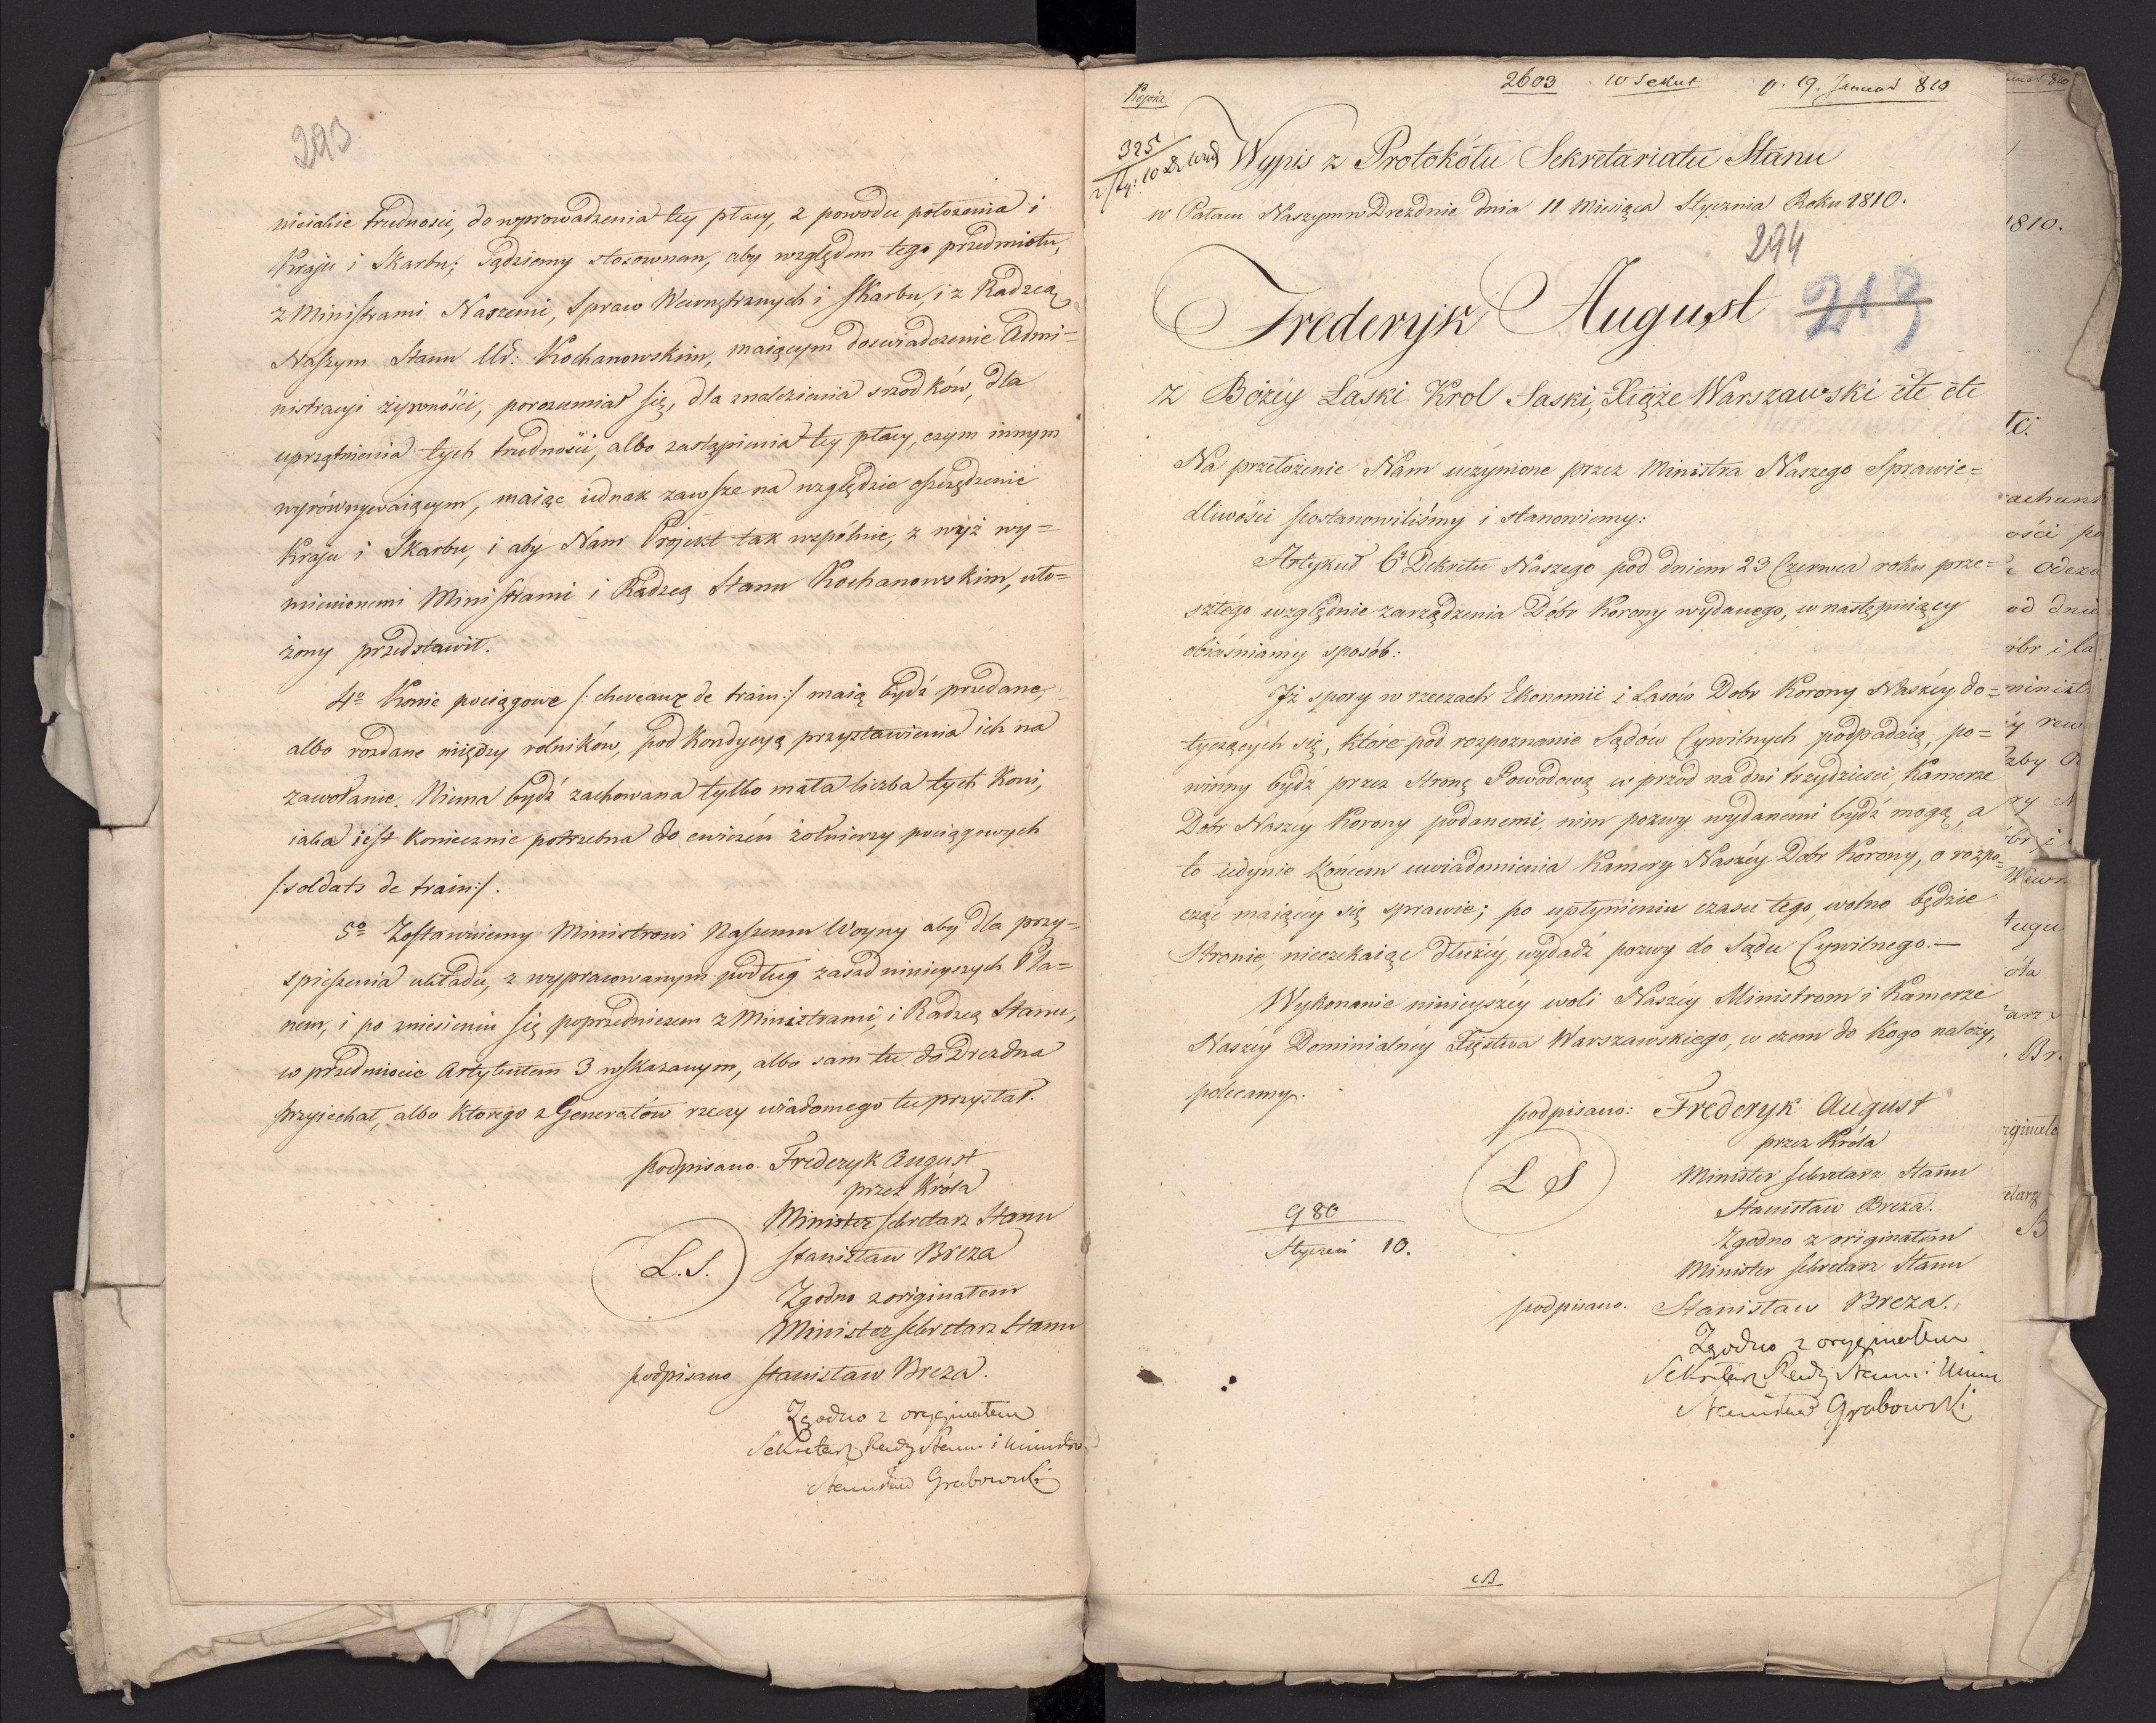 293
nieiakie trudności, do wyprowadzenia tey płacy, z powodu położenia i
Kraju i Skarbu; Sądziemy stosownem, aby względem tego przedmiotu,
z Ministrami Naszemi, Spraw Wewnętrznych i Skarbu, i z Radzcą
Naszym Stanu Ur: Kochanowskim, maiącym doswiadczenie Admi=
nistracyi żywności, porozumiał się, dla znalezienia srzodków, dla
uprzątnienia tych trudności, albo zastąpienia tey płacy, czym innym
wyrównywaiącym, maiąc iednak zawsze na względzie oszczędzenie
Kraju i Skarbu, i aby Nam Projekt tak wspólnie, z wyż wy=
mienionemi Ministrami i Radzcą Stanu Kochanowskim, uło=
żony przedstawił.
4o Konie pociągowe /: cheveaux de train :/ maią bydź przedane,
albo rozdane między rolników, pod Kondycyą przystawienia ich na
zawołanie. Niema bydź zachowana tylko mała liczba tych Koni,
iaka iest koniecznie potrzebna do cwiczeń żołnierzy pociągowych
/:soldats de train:/.
5o Zostawuiemy Ministrowi Naszemu Woyny aby dla przy=
spieszenia układu, z wypracowanym podług zasad ninieyszych Pla=
nem, i po zniesieniu się poprzedniczem z Ministrami, i Radzcą Stanu,
w przedmiocie Artykułem 3 wskazanym, albo sam tu do Drezdna
przyiechał, albo którego z Generałów rzeczy wiadomego tu przysłał.
podpisano. Frederyk August
przez Króla
Minister Sekretarz Stanu
L.S. Stanisław Breza
Zgodno z originałem
Minister Sekretarz Stanu
podpisano Stanisław Breza.
Zgodno z oryginałem
Sekretarz Rady Stanu i Ministrów
Stanisław Grabowski
Kopia
2603 p. 19. Januar 810
325
Wypis z Protokółu Sekretariatu Stanu
w Pałacu Naszym w Dreźdnie dnia 11 Miesiąca Stycznia Roku 1810.
294
Frederyk August 219
z Bożéy Łaski Krol Saski, Xiąże Warszawski etc etc
Na przełożenie Nam uczynione przez Ministra Naszego Sprawie=
dliwości postanowiliśmy i stanowiemy:
Artykuł 6ty Dekretu Naszego pod dniem 23 Czerwca roku prze=
szłego względnie zarządzenia Dóbr Korony wydanego, w następuiący
obiaśniamy sposób:
Iż spory w rzeczach Ekonomii i Lasów Dobr Korony Naszéy do=
tyczących się, które pod rozpoznanie Sądów Cywilnych podpadaią, po=
winny bydź przez Stronę Powodową w przód na dni trzydzieści, Kamerze
Dobr Naszéy Korony podanemi, nim pozwy wydanemi bydź mogą, a
to iedynie końcem uwiadomienia Kamery Naszéy Dobr Korony, o rozpo=
cząć maiącéy się sprawie; po upłynieniu czasu tego, wolno będzie
Stronie, nieczekaiąc dłużéy, wydadź pozwy do Sądu Cywilnego.—
Wykonanie ninieyszéy woli Naszéy Ministrom i Kamerze
Naszéy Dominialnéy Xięstwa Warszawskiego, w czem do kogo należy,
polecamy.
podpisano: Frederyk August
przez Króla
L S Minister Sekretarz Stanu
Stanisław Breza.
980
Styczeń 10.
Zgodno z oryginałem
Minister Sekretarz Stanu
podpisano. Stanisław Breza.
Zgodno z oryginałem
Sekretarz Rady Stanu i Minis
Stanisław Grabowski